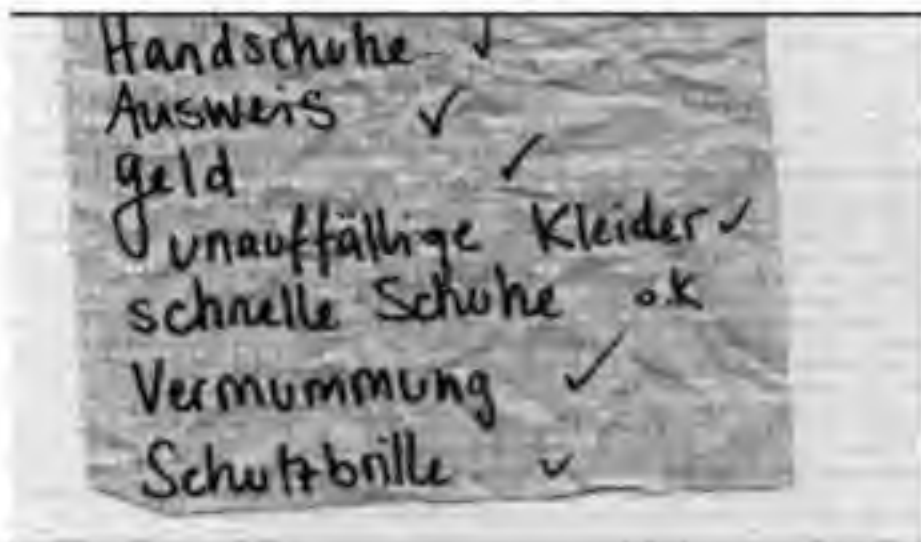 Handschuhe ✓
Ausweis ✓
geld ✓
unauffällige Kleider ✓
schnelle Schuhe o.K
Vermummung ✓
Schutzbrille ✓